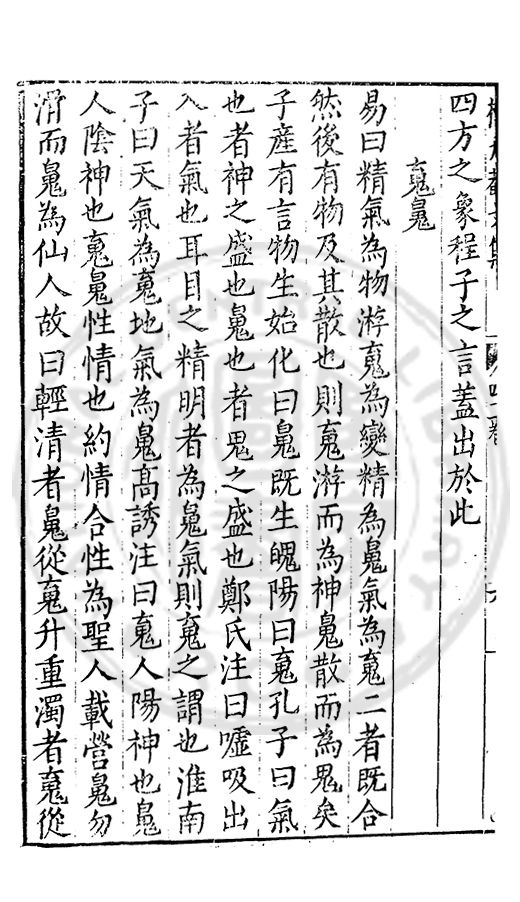 四方之象程子之言蓋出於此
䰟魄
易曰精氣為物游䰟為變精為魄氣為䰟二者既合
然後有物及其散也則䰟游而為神魄散而為鬼矣
子產有言物生始化曰魄既生魄陽曰䰟孔子曰氣
也者神之盛也魄也者鬼之盛也鄭氏注曰噓吸出
入者氣也耳目之精明者為魄氣則䰟之謂也淮南
子曰天氣為䰟地氣為魄高誘注曰䰟人陽神也魄
人陰神也䰟魄性情也約情合性為聖人載營魄勿
滑而魄為仙人故曰輕清者魄從䰟升重濁者䰟從